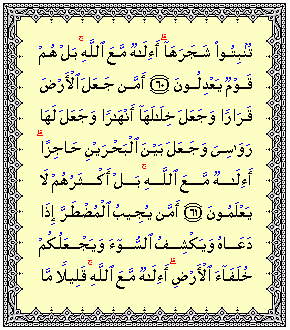 تُنۢبِتُوا۟ شَجَرَهَآ ۗ أَءِلَـٰهٌ مَّعَ ٱللَّهِ ۚ بَلْ هُمْ
قَوْمٌ يَعْدِلُونَ ٦٠ أَمَّن جَعَلَ ٱلْأَرْضَ
قَرَارًا وَجَعَلَ خِلَـٰلَهَآ أَنْهَـٰرًا وَجَعَلَ لَهَا
رَوَٰسِىَ وَجَعَلَ بَيْنَ ٱلْبَحْرَيْنِ حَاجِزًا ۗ
أَءِلَـٰهٌ مَّعَ ٱللَّهِ ۚ بَلْ أَكْثَرُهُمْ لَا
يَعْلَمُونَ ٦١ أَمَّن يُجِيبُ ٱلْمُضْطَرَّ إِذَا
دَعَاهُ وَيَكْشِفُ ٱلسُّوٓءَ وَيَجْعَلُكُمْ
خُلَفَآءَ ٱلْأَرْضِ ۗ أَءِلَـٰهٌ مَّعَ ٱللَّهِ ۚ قَلِيلًا مَّا